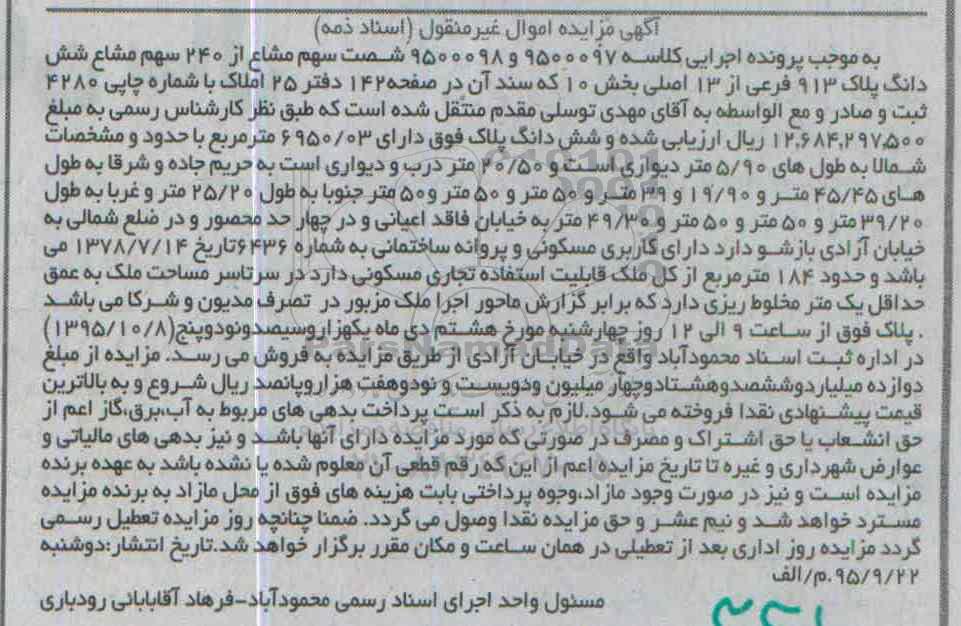 آگهی مزایده اموال غیرمنقول (اسناد ذمه)
به موجب پرونده اجرایی کلاسه ۹۵۰۰۰۹۷ و ۹۵۰۰۰۹۸ شصت سهم مشاع از ۲۴۰ سهم مشاع شش
دانگ پلاک ۹۱۳ فرعی از ۱۳ اصلی بخش ۱۰ که سند آن در صفحه۱۴۲ دفتر ۲۵ املاک با شماره چاپی ۴۲۸۰
ثبت و صادر و مع الواسطه به آقای مهدی توسلی مقدم منتقل شده است که طبق نظر کارشناس رسمی به مبلغ
۱۲,۶۸۴,۲۹۷,۵۰۰ ریال ارزیابی شده و شش دانگ پلاک فوق دارای ۶۹۵۰/۰۳ مترمربع با حدود و مشخصات
شمالا به طول های ۵/۹۰ متر دیواری است و ۲۰/۵۰ متر درب و دیواری است به حریم جاده و شرقا به طول
های ۴۵/۴۵ متر و ۱۹/۹۰ و ۳۹ متر و ۵۰ متر و ۵۰ متر و ۵۰ متر جنوبا به طول ۲۵/۲۰ متر و غربا به طول
۳۹/۲۰ متر و ۵۰ متر و ۵۰ متر و ۴۹/۳۰ متر به خیابان فاقد اعیانی و در چهار حد محصور و در ضلع شمالی به
خیابان آزادی بازشو دارد دارای کاربری مسکونی و پروانه ساختمانی به شماره ۶۴۳۶تاریخ ۱۳۷۸/۷/۱۴ می
باشد و حدود ۱۸۴ مترمربع از کل ملک قابلیت استفاده تجاری مسکونی دارد در سرتاسر مساحت ملک به عمق
حداقل یک متر مخلوط ریزی دارد که برابر گزارش ماحور اجرا ملک مزبور در تصرف مدیون و شرکا می باشد
. پلاک فوق از ساعت ۹ الی ۱۲ روز چهارشنبه مورخ هشتم دی ماه یکهزاروسیصدونودوپنج(۱۳۹۵/۱۰/۸)
در اداره ثبت اسناد محمودآباد واقع در خیابان آزادی از طریق مزایده به فروش می رسد. مزایده از مبلغ
دوازده میلیاردوششصدوهشتادوچهار میلیون ودویست و نودوهفت هزاروپانصد ریال شروع و به بالاترین
قیمت پیشنهادی نقدا فروخته می شود.لازم به ذکر است پرداخت بدهی های مربوط به آب،برق،گاز اعم از
حق انشعاب یا حق اشتراک و مصرف در صورتی که مورد مزایده دارای آنها باشد و نیز بدهی های مالیاتی و
عوارض شهرداری و غیره تا تاریخ مزایده اعم از این که رقم قطعی آن معلوم شده یا نشده باشد به عهده برنده
مزایده است و نیز در صورت وجود مازاد،وجوه پرداختی بابت هزینه های فوق از محل مازاد به برنده مزایده
مسترد خواهد شد و نیم عشر و حق مزایده نقدا وصول می گردد. ضمنا چنانچه روز مزایده تعطیل رسمی
گردد مزایده روز اداری بعد از تعطیلی در همان ساعت و مکان مقرر برگزار خواهد شد.تاریخ انتشار:دوشنبه
۹۵/۹/۲۲.م/الف
مسئول واحد اجرای اسناد رسمی محمودآباد-فرهاد آقابابائی رودباری
ParsNamadData